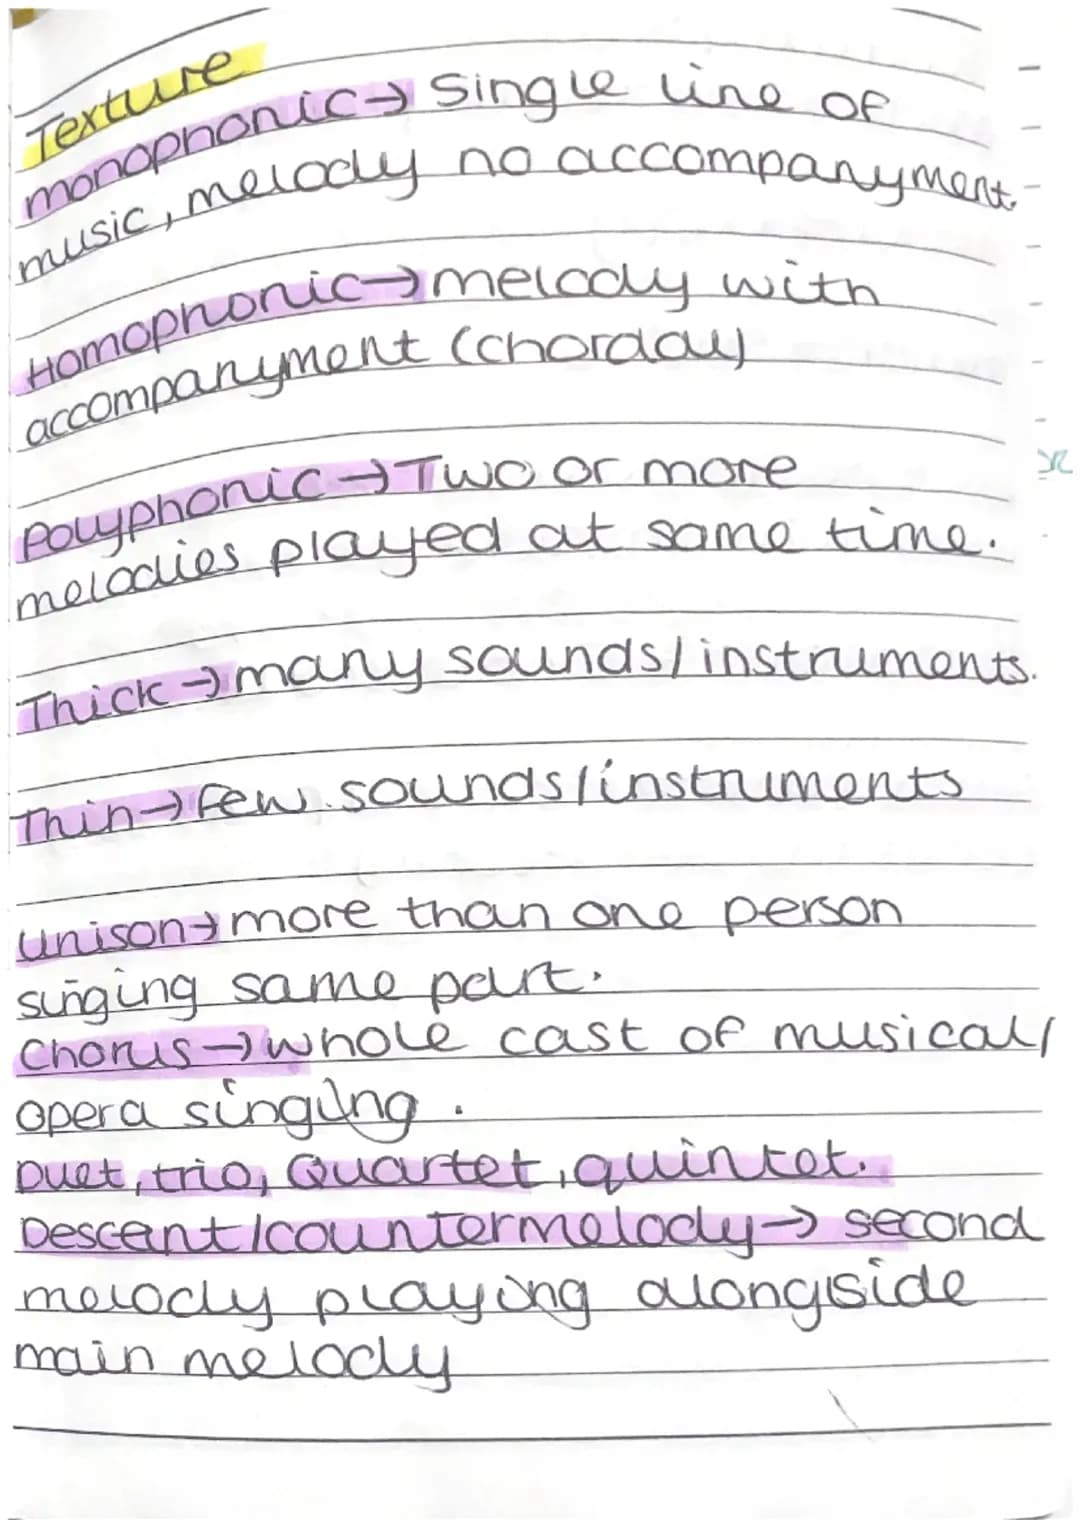 Texture
monophonic → Single line of
music, melody no accompanyment.
Homophonic → melody with
accompanyment (chordal)
Polyphonic → Two or more
melodies played at same time.
Thick → many sounds/instruments.
Thin → few sounds/instruments
Unison → more than one person
singing same part.
Chorus → whole cast of musical/
opera singing.
Duet, trio, Quartet, quintet.
Descant/countermelody → second
melody playing alongside
main melody